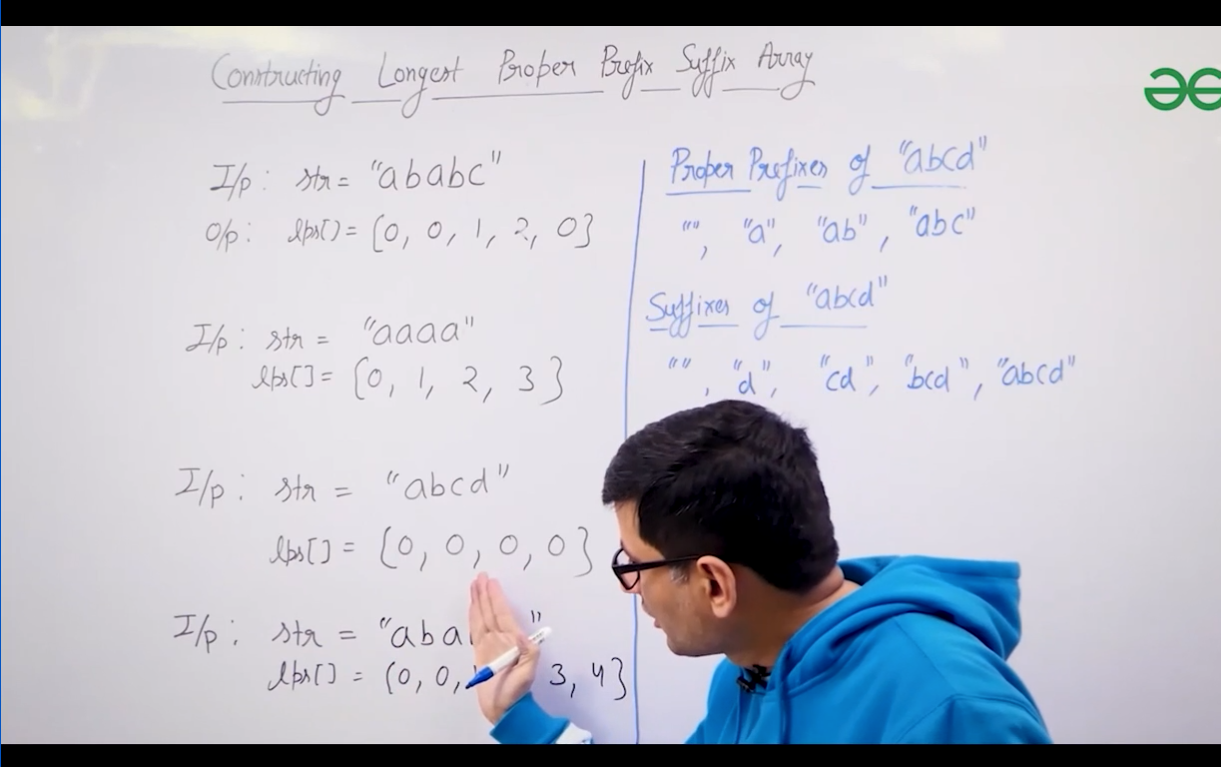 Constructing Longest Proper Prefix Suffix Array
I/p : str = "ababc"
O/p : lps[] = {0, 0, 1, 2, 0}
I/p : str = "aaaa"
lps[] = {0, 1, 2, 3}
I/p : str = "abcd"
lps[] = {0, 0, 0, 0}
I/p : str = "aba "
lps[] = {0, 0, 3, 4}
Proper Prefixes of "abcd"
"", "a", "ab", "abc"
Suffixes of "abcd"
"", "d", "cd", "bcd", "abcd"